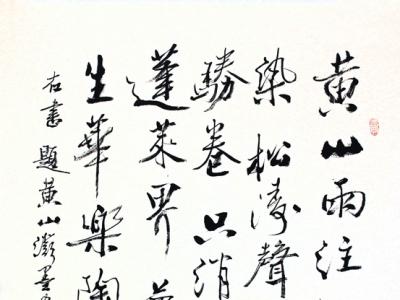 黄山雨注
染松涛聲
勝卷只消
蓬萊界
生華樂陶
右書題黄山徽墨